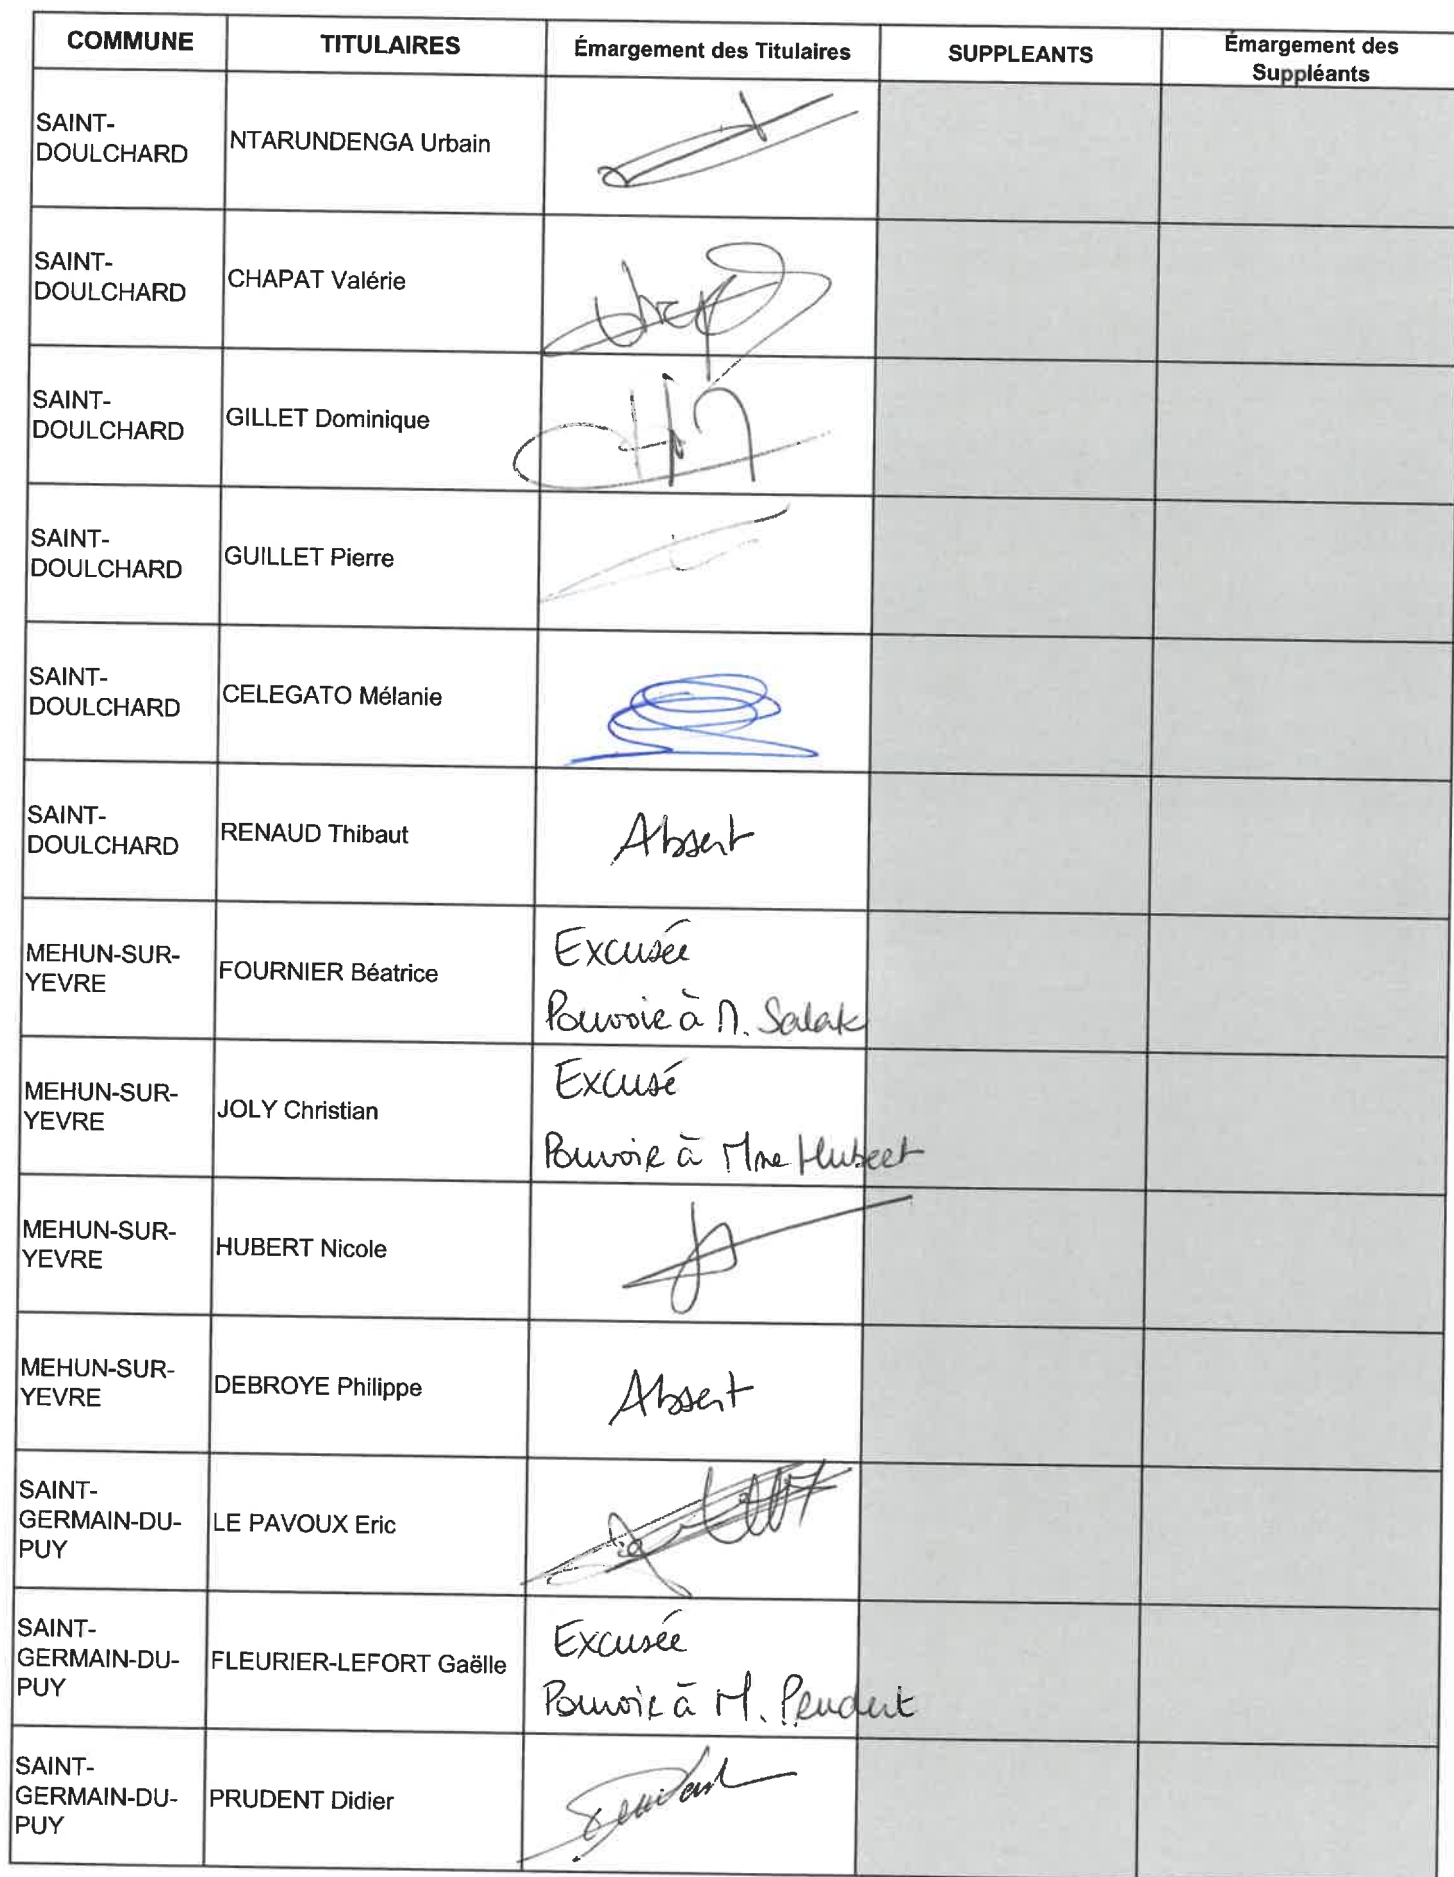 COMMUNE TITULAIRES Émargement des Titulaires SUPPLEANTS Émargement des
Suppléants
SAINT-
DOULCHARD NTARUNDENGA Urbain
SAINT-
DOULCHARD CHAPAT Valérie
SAINT-
DOULCHARD GILLET Dominique
SAINT-
DOULCHARD GUILLET Pierre
SAINT-
DOULCHARD CELEGATO Mélanie
SAINT-
DOULCHARD RENAUD Thibaut Absent
MEHUN-SUR-
YEVRE FOURNIER Béatrice Excusée
Pouvoir à M. Salak
MEHUN-SUR-
YEVRE JOLY Christian Excusé
Pouvoir à Mme Hubert
MEHUN-SUR-
YEVRE HUBERT Nicole
MEHUN-SUR-
YEVRE DEBROYE Philippe Absent
SAINT-
GERMAIN-DU-
PUY LE PAVOUX Eric
SAINT-
GERMAIN-DU-
PUY FLEURIER-LEFORT Gaëlle Excusée
Pouvoir à M. Prudent
SAINT-
GERMAIN-DU-
PUY PRUDENT Didier